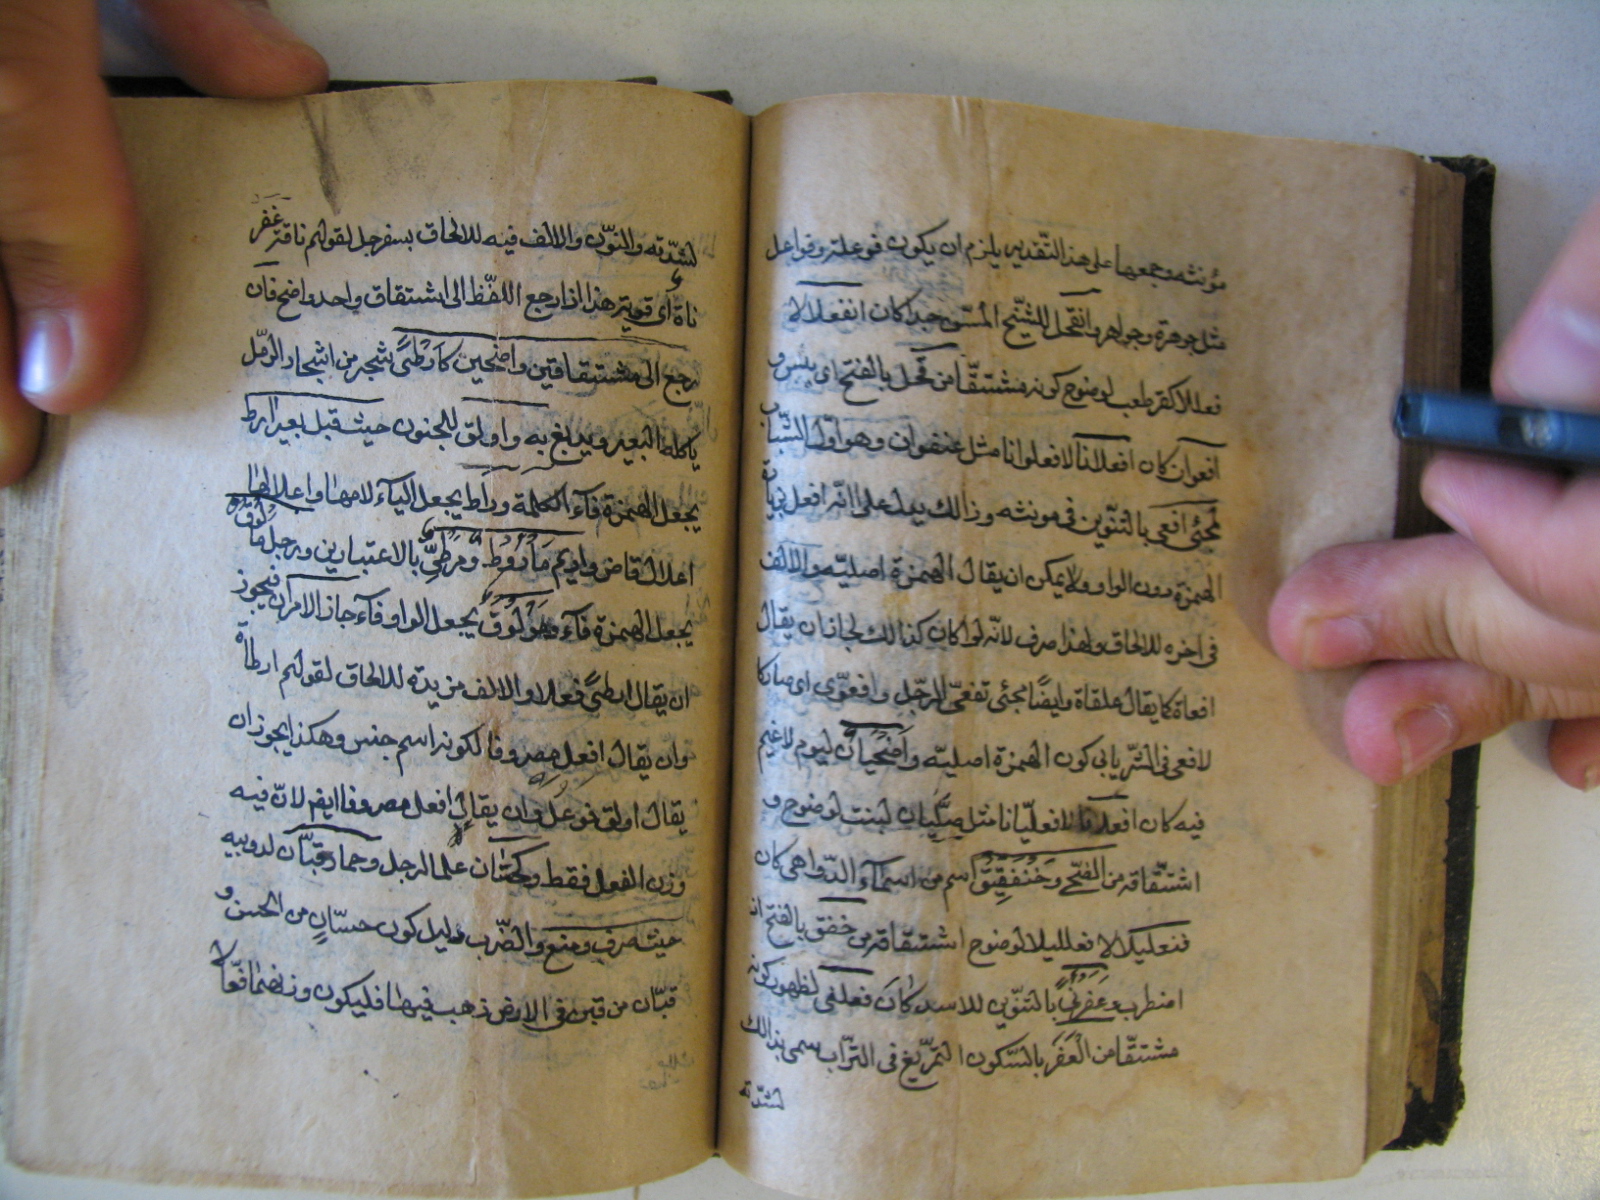 مؤنثه وجمعها على هذا التقدير يلزم ان يكون فوعلة وفواعل
مثل جوهرة وجواهر وانقحل للشيخ المسن جدا كان انفعلا لا
فعللا كقرطعب لوضوح كونه مشتقا من قحل بالفتح اى يبس و
افعوان كان افعلانا لا فعلوانا مثل عنفوان وهو اول الشباب
لمجئ افعى بالتنوين فى مونثه وذالك يدل على انه افعل بزيادة
الهمزة دون الواو ولا يمكن ان يقال الهمزة اصلية والالف
فى اخره للالحاق ولهذا صرف لانه لو كان كذالك لجاز ان يقال
افعاة كما يقال علقاة وايضًا مجئ تفعى الرجل وافعوى اى صار كا
لافعى فى الشر يابى كون الهمزة اصلية واضحيان ليوم لا غيم
فيه كان افعلانا لا فعليانا مثل صليان لبنت لوضوح و
اشتقاقه من الضحى وخنفقيق اسم من اسماء الدواهى كان
فنعليلا لا فعلليلا لوضوح اشتقاقه من خفق بالفتح اذ
اضطرب وعفرنى بالتنوين للاسد كان فعلنى لظهور كونه
مشتقا من العفر بالسكون التمريغ فى التراب سمى بذالك
لشدته
لشدته والنون والالف فيه للالحاق بسفرجل لقولهم ناقة عفر
ناة اى قوية هذا اذا رجع اللفظ الى اشتقاق واحد واضح فان
رجع الى مشتقاقين واضحين كارطى شجر من اشجار الرمل
ياكله البعير ويدبغ به واولق للجنون حيث قيل بعير ارط
يجعل الهمزة فآء الكلمة وراط يجعل اليآء لامها واعلالها
اعلال قاض واديم مأروط ومرطى بالاعتبارين ورجل مألوق
يجعل الهمزة فآء ومولوق يجعل الواو فآء جاز الامران فيجوز
ان يقال ارطى فعلا والالف مزيدة للالحاق لقولهم ارطاة
وان يقال افعل مصروفا لكونه اسم جنس وهكذا يجوز ان
يقال اولق فوعل وان يقال افعل مصروفا ايضا لان فيه
وزن الفعل فقط وكحسّان علما لرجل وحمار قبّان لدويبه
حيث صرف ومنع والضرب دليل كون حسّان من الحسن و
قبّان من قبن فى الارض ذهب فيها فليكون وزنهما فعّالا